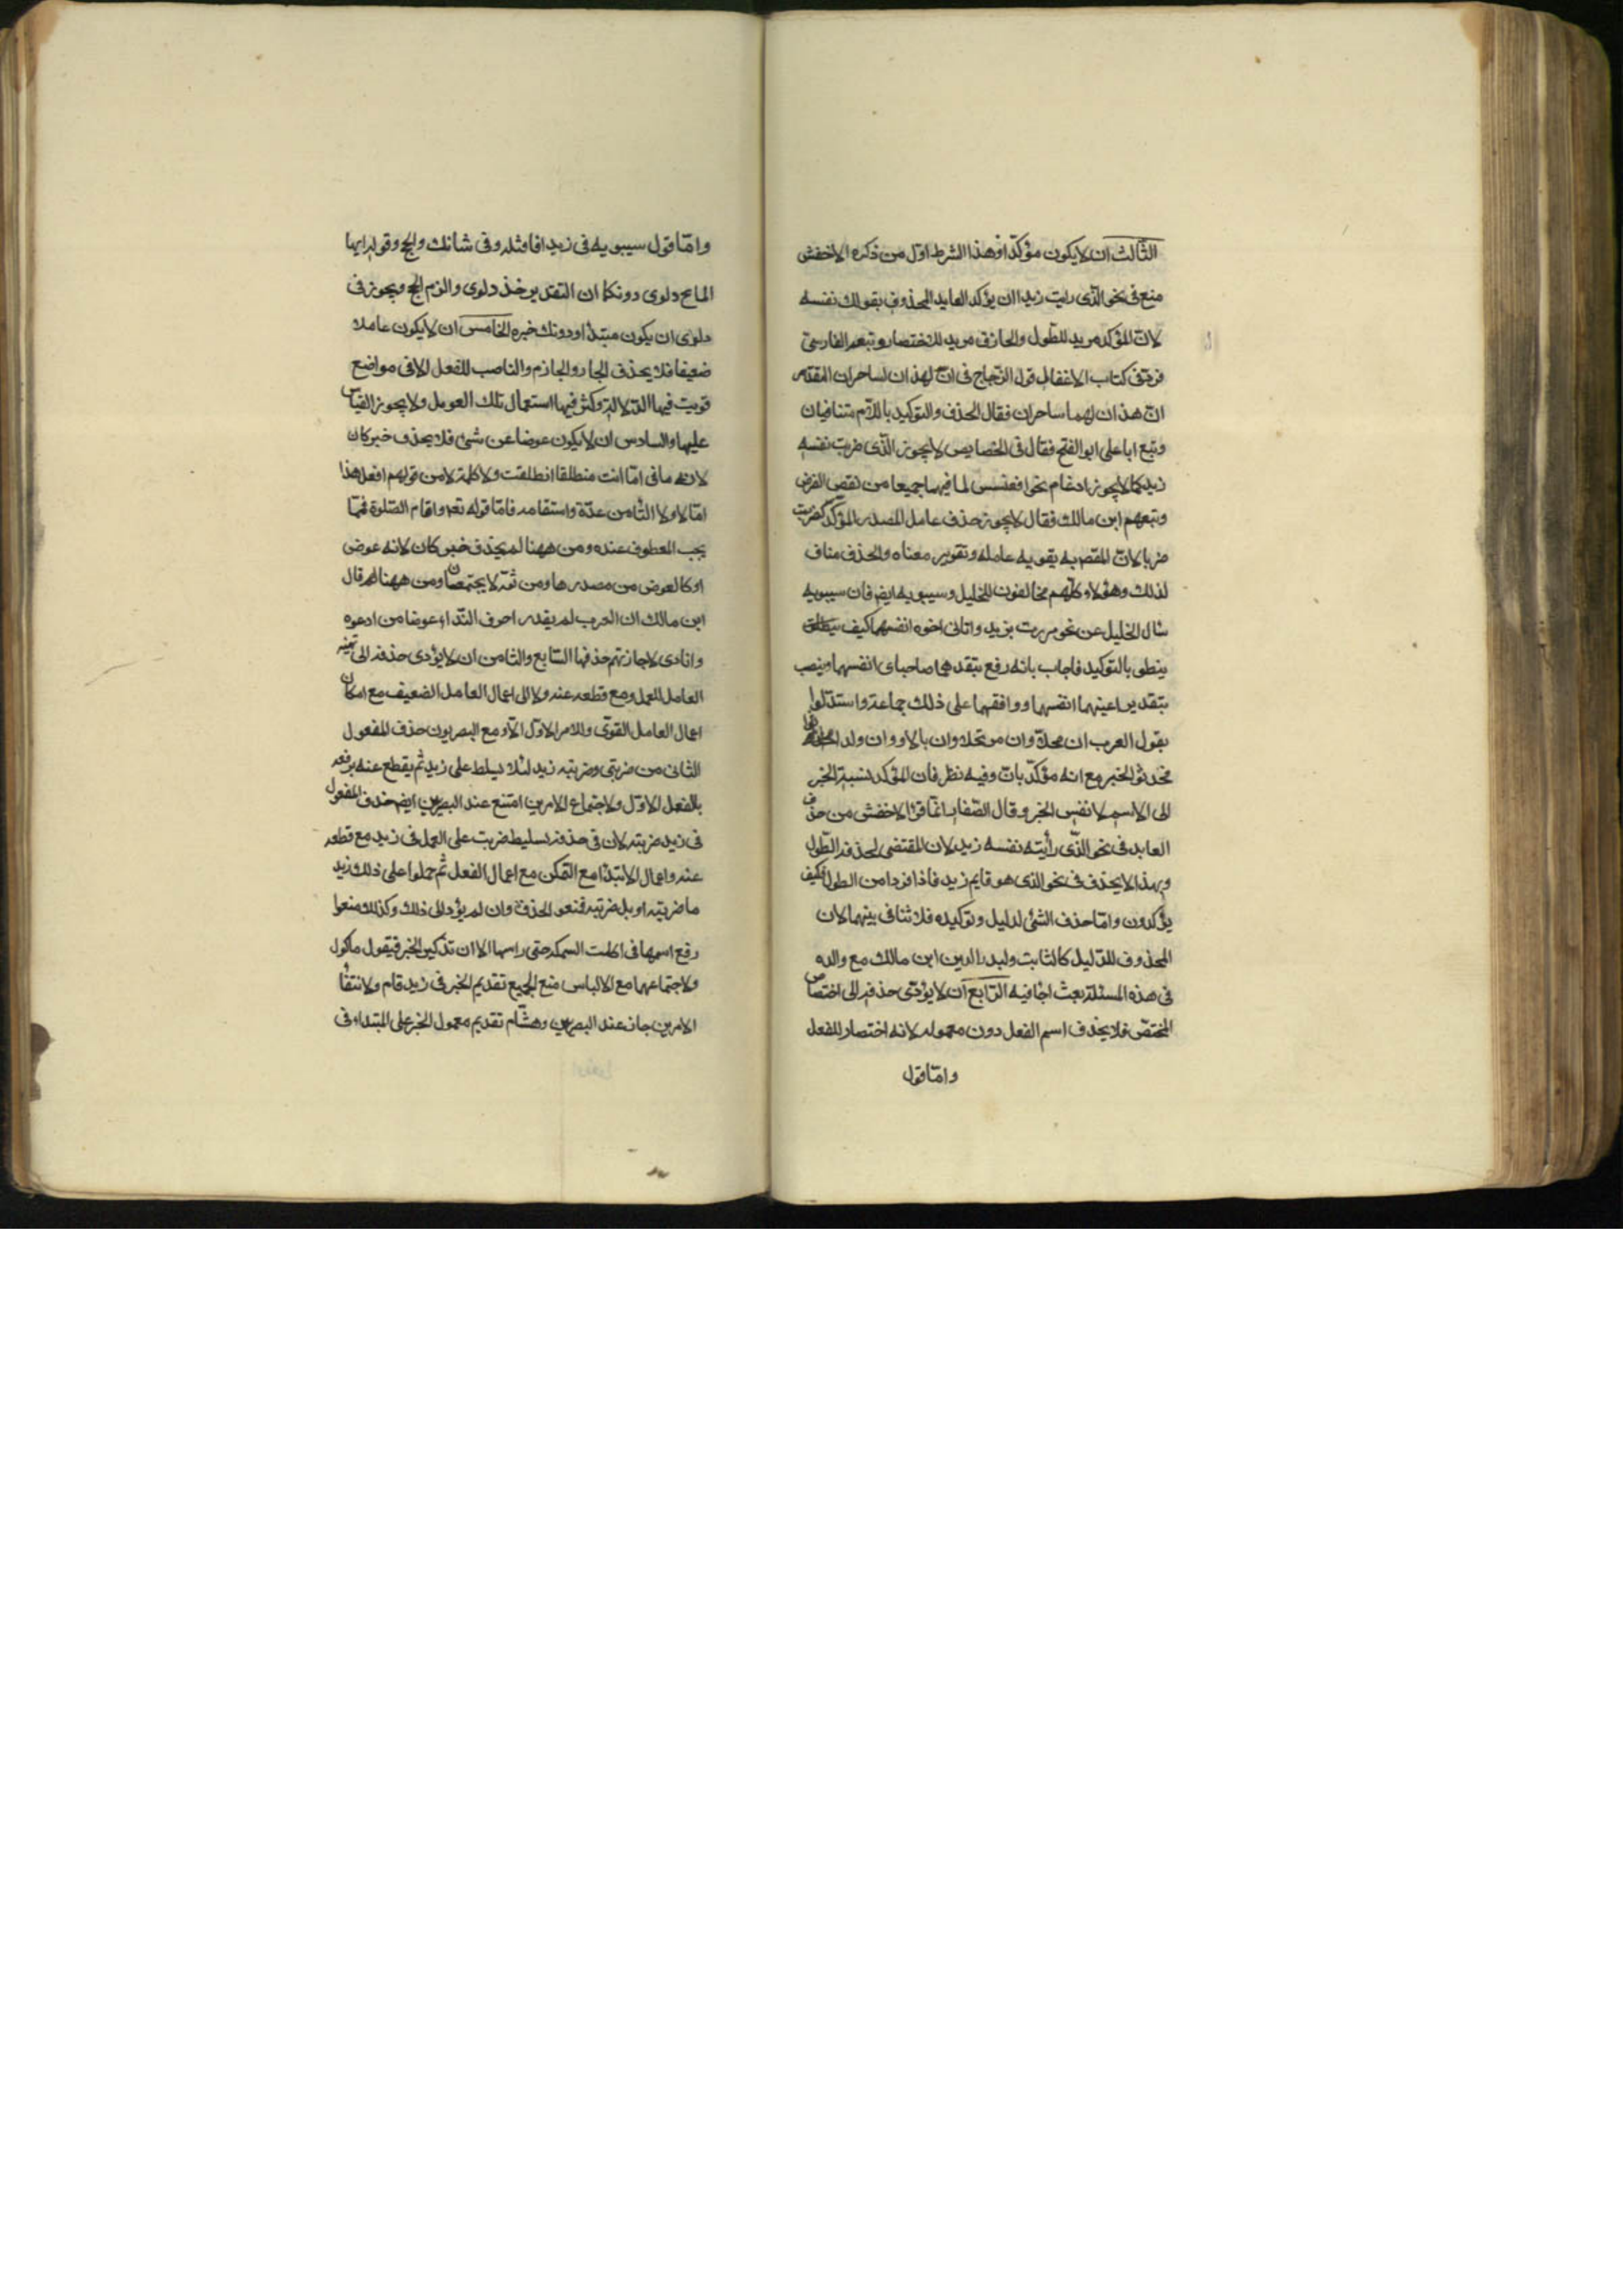 الثالث ان لا يكون مؤكدا وهذا الشرط اول من ذكره الاخفش
منع في نحو الذي رايت زيدا ان يؤكد العايد المحذوف بقولك نفسه
لان المؤكد مريد للطول والحاذف مريد للاختصار وتبعه الفارسي
فرد في كتاب الاغفال قول الزجاج في ان هذان لساحران المقدر
ان هذان لهما ساحران فقال الحذف والتوكيد باللام متنافيان
وتبع ابا على ابو الفتح فقال في الخصايص لا يجوز الذي ضربت نفسه
زيد كما لا يجوز ادغام نحو اقعنسس لما فيهما جميعا من نقض الغرض
وتبعهم ابن مالك فقال لا يجوز حذف عامل المصدر المؤكد كضربت
ضربا لان المقص به تقوية عامله وتقوير معناه والحذف مناف
لذلك وهؤلاء كلهم مخالفون للخليل وسيبويه ايض فان سيبويه
سال الخليل عن نحو مررت بزيد واتانى اخوه انفسهما كيف
ينطق بالتوكيد فاجاب بانه رفع بتقدير هما صاحباى انفسهما وينصب
بتقدير اعينهما انفسهما ووافقهما على ذلك جماعة واستدلوا
بقول العرب ان محلا وان مرتحلا وان مالا وان ولدا
فحذفوا الخبر مع انه مؤكد بان وفيه نظر فان المؤكد نسبة الخبر
الى الاسم لا نفس الخبر وقال الصفار انما فر الاخفش من حذف
العايد في نحو الذي رأيته نفسه زيد لان المقتضى لحذفه الطول
وبهذا لا يحذف في نحو الذى هو قايم زيد فاذا فردا من الطول فكيف
يؤكدون واما حذف الشئ لدليل وتوكيده فلا تنافى بينهما لان
المحذوف للدليل كالثابت ولبدر الدين ابن مالك مع والده
في هذه المسئلة بحث اجاد فيه الرابع ان لا يؤدى حذفه الى اختصار
المختص فلا يحذف اسم الفعل دون معموله لانه اختصار للفعل
واما قول
واما قول سيبويه في زيدا فاقتله وفى شانك والحج وقوله ايها
المايح دلوى دونكا ان التقدير خذ دلوى والزم الحج ويجوز في
دلوى ان يكون مبتدأ ودونك خبره الخامس ان لا يكون عاملا
ضعيفا فلا يحذف الجار والجازم والناصب للفعل الا فى مواضع
قويت فيها الدلالة وكثر فيها استعمال تلك العومل ولا يجوز القياس
عليها والسادس ان لا يكون عوضا عن شئ فلا يحذف خبر كان
لانه ما فى اما انت منطلقا انطلقت ولا كلمة لا من قولهم افعل هذا
اما لا ولا التا من عدة واستقامة فاما قوله تع واقام الصلوة فمما
يجب العطوف عنده ومن ههنا لم يحذف خبر كان لانه عوض
او كالعوض من مصدرها ومن ثم لا يجتمعان ومن ههنا قال
ابن مالك ان العرب لم يقدر احرف النداء عوضا من ادعوه
وانادى لاجازتهم حذفها السابع والثامن ان لا يؤدى حذفه الى تهيئه
العامل للعمل ومع قطعه عنه ولا الى اعمال العامل الضعيف مع امكان
اعمال العامل القوى وللامر الاول الاو مع البصريون حذف المفعول
الثانى من ضربنى وضربته زيد لئلا يسلط على زيد ثم يقطع عنه برفعه
بالفعل الاول ولاجتماع الامرين امتنع عند البصريين ايض حذف المفعول
فى زيد ضربته لان فى حذفه تسليط ضربت على العمل فى زيد مع قطعه
عنه واعمال الابتدا مع التمكن مع اعمال الفعل ثم حملوا على ذلك زيد
ما ضربته او بل ضربته فمنعو الحذف وان لم يؤد الى ذلك وكذلك منعوا
رفع اسمها فى اكلت السمكة حتى راسها الا ان تذكير الخبر فيقول ماكول
ولاجتماعهما مع الالباس منع الجميع تقديم الخبر فى زيد قام ولانتفأ
الامرين جاز عند البصريين وهشام تقديم معمول الخبر على المبتداء فى